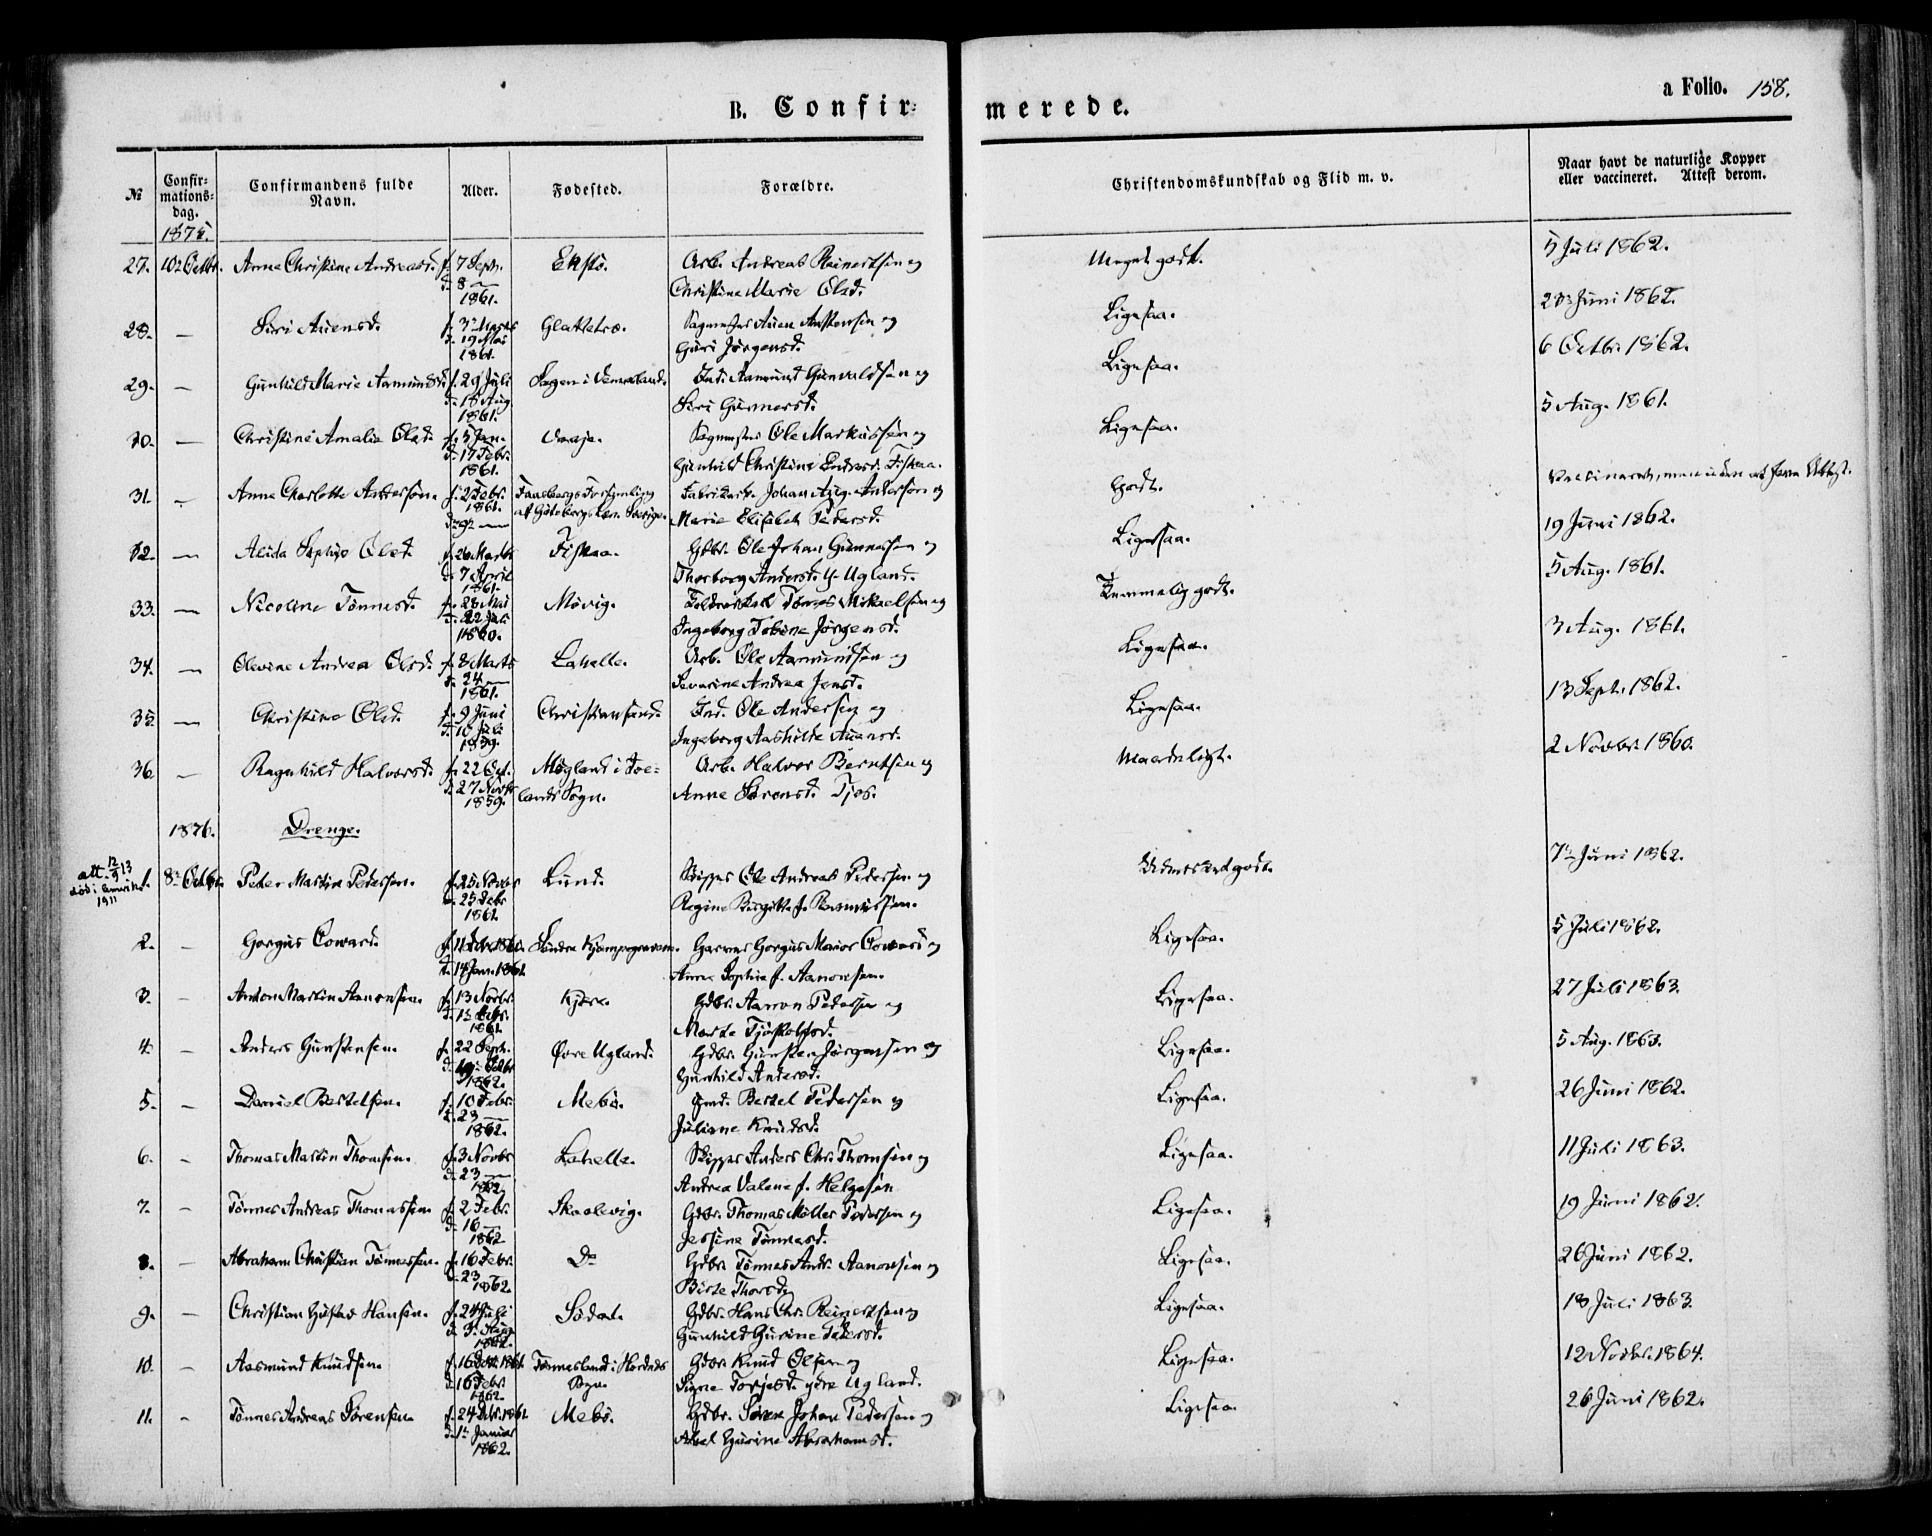 B. Confir-merede.
a Folio. 158.
№ Confirmationsdag. Confirmandens fulde Navn. Alder. Fødested. Forældre. Christendomskundskab og Flid m. v. Naar havt de naturlige Kopper eller vaccineret. Attest derom.
1875.
27. 10de Octbr. Anne Christine Andreasd. f. 7 Septr. Ekstø. Arb. Andreas Reinertsen og Meget godt. 5 Juli 1862.
d. 8 —
1861. Christine Marie Olsd.
28. — Siri Auensd. f. 3 Marts Glattetræ. Auen Anstensen og Ligesaa. Juni 1862.
d. 19 Mai
1861. Guri Jørgensd.
29. — Gunhild Marie Aamundsd. f. 29 Juli Ind. Aamund Gunvaldsen og Ligesaa. 6 Octbr. 1862.
d. 18 Aug.
1861. Siri Gunnersd.
30. — Christine Amalie Olsd. f. 5 Jan. Vraje. Ole Markussen og Ligesaa. 5 Aug. 1861.
d. 17 Febr.
1861. Gunhild Christine Endresd. Fiskaa.
31. — Anne Charlotte Anderson. f. 2 Febr. Johan Aug. Anderson og Godt. Vaccineret, men uden at have Attest.
1861. af Gøteborgs Len. Sverige.
Marie Elisabet Pedersd.
32. — Alida Sophie Olsd. f. 26 Marts Fiskaa. Gdbr. Ole Johan Gunnersen og Ligesaa. 19 Juni 1862.
d. 7 April
1861. Thorborg Andersd. Y. Ugland.
33. — Nicoline Tønnesd. f. 28 Mai Møvig. Tønnes Mikaelsen og Temmelig godt. 5 Aug. 1861.
d. 22 Juli
1860. Ingeborg Tobine Jørgensd.
34. — Olevine Andrea Olsd. f. 8 Marts Lahelle. Arb. Ole Aamundsen og Ligesaa. 3 Aug. 1861.
d. 24 —
1861. Severine Andrea Jensd.
35. — Christine Olsd. f. 9 Juni Christiansand. Ind. Ole Andersen og Ligesaa. 13 Septr. 1862.
d. 10 Juli
1859. Ingeborg Aashilde Auensd.
36. — Ragnhild Halvorsd. f. 22 Oct. Møgland i Arb. Halvor Berntsen og Maadeligt. 2 Novbr. 1860.
d. 27 Novbr.
1859. lands Sogn. Anne Sørensd. Tjos.
1876. Drenge.
att. 12/9 13
død i
1911
1. 8de Octbr. Peder Martin Pedersen. f. 25 Novbr. Lund. Skipper Ole Andreas Pedersen og Udmærket godt. 7de Juni 1862.
d. 25 Debr.
1861. Regine Birgitte f. Rasmussen.
2. — Gorgus Coward. f. 11 Debr. 1860. Søndre Kjempegravan. Garver Gorgus Marior Coward og Ligesaa. 5 Juli 1862.
d. 14 Jan. 1861. Anne Sophie f. Aanonsen.
3. — Anton Martin Aanonsen. f. 13 Novbr. Kjære. Gdbr. Aanon Pedersen og Ligesaa. 27 Juli 1863.
d. 13 Debr.
1861. Marte Tjøstolfsd.
4. — Anders Gunstensen. f. 22 Septr. Øvre Ugland. Gdbr. Gunsten Jørgensen og Ligesaa. 5 Aug. 1863.
1862. Gunhild Andersd.
5. — Daniel Bertelsen. f. 10 Febr. Mebø. Bertel Pedersen og Ligesaa. 26 Juni 1862.
d. 23 —
1862. Juliane Knudsd.
6. — Thomas Martin Thomsen. f. 3 Novbr. Lahelle. Skipper Anders Chr. Thomsen og Ligesaa. 11 Juli 1863.
d. 23 —
1862 Andrea Valene f. Helgesen
7. — Tønnes Andreas Thomassen. f. 2 Febr. Skaalevig. Gdbr. Thomas Møller Pedersen og Ligesaa. 19 Juni 1862.
d. 16 —
1862 Jessine Tønnesd.
8. — Abraham Christian Tønnessen. f. 16 Febr. Do Gdbr. Tønnes Andr. Aanonsen og Ligesaa. 26 Juni 1862.
d. 23 —
1862. Birte Thorsd.
9. — Christian Gustav Hansen. f. 24 Juli Sødal. Gdbr. Hans Chr. Reinertsen og Ligesaa. 18 Juli 1863.
d. 3. Aug.
1862. Gunhild Gurine Pedersd.
10. — Aasmund Knudsen. f. 16 1861. Tønnesland i Sogn. Gdbr. Knud Olsen og Ligesaa. 12 Novbr. 1864.
d. 16 Febr.
1862. Signe Torjesd. ydre Ugland.
11. — Tønnes Andreas Sørensen. f. 24 Debr. 1861. Mebø. Gdbr. Søren Johan Pedersen og Ligesaa. 26 Juni 1862.
d. 1ste Januar
1862. Axel Gurine Abrahamsd.